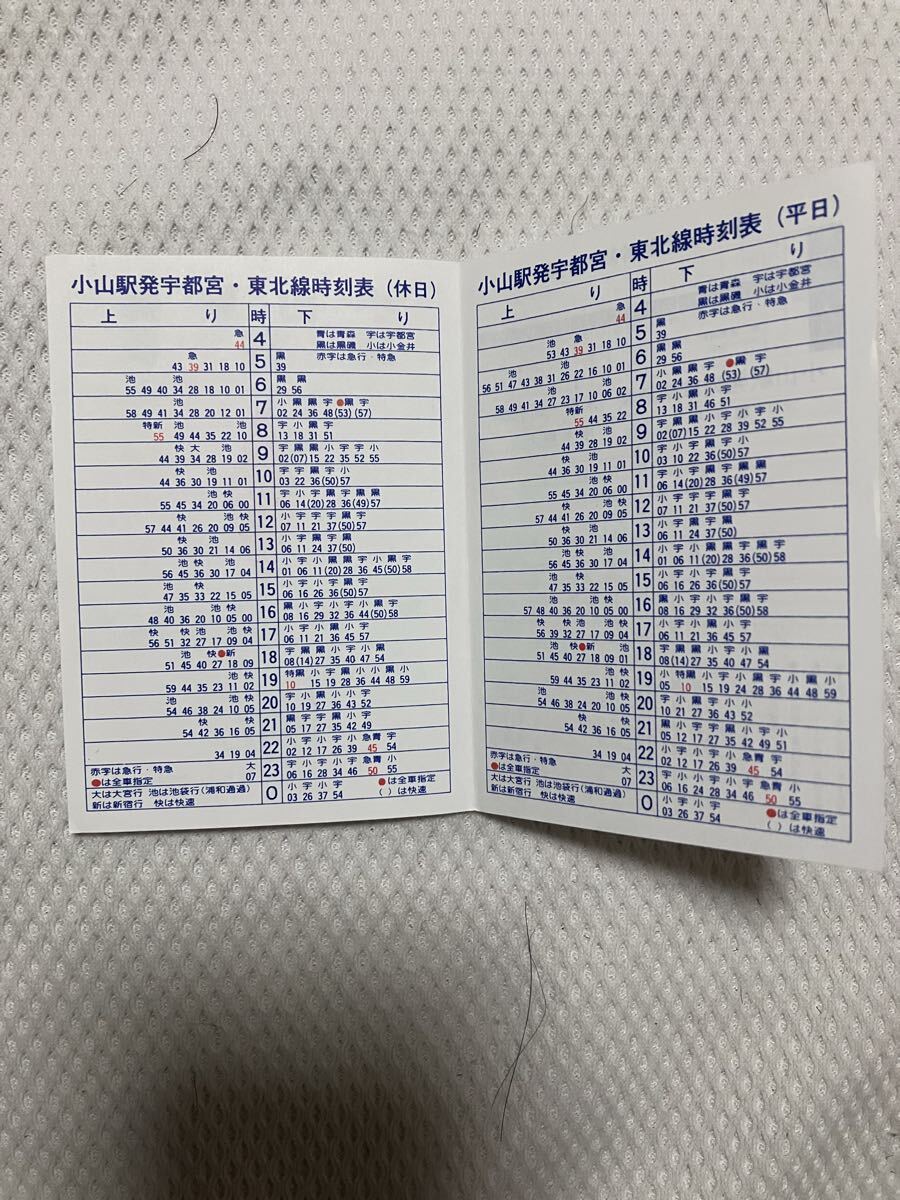 小山駅発宇都宮・東北線時刻表（休日）
上 り 時 下 り
急 青は青森 宇は宇都宮
44 4 黒は黒磯 小は小金井
急 黒 赤字は急行・特急
43 39 31 18 10 5 39
池 池 黒 黒
55 49 40 34 28 18 10 01 6 29 56
池 小 黒 黒 宇 ●黒 宇
58 49 41 34 28 20 12 01 7 02 24 36 48 (53) (57)
特新 池 池 宇 小 黒 宇
55 49 44 35 22 10 8 13 18 31 51
快 大 池 宇 黒 黒 小 宇 宇 小
44 39 34 28 19 02 9 02 (07) 15 22 35 52 55
快 池 宇 宇 黒 宇 小
44 36 30 19 11 01 10 03 22 36 (50) 57
池 快 宇 小 宇 黒 宇 黒 黒
55 45 34 20 06 00 11 06 14 (20) 28 36 (49) 57
快 池 快 小 宇 宇 宇 黒 宇
57 44 41 26 20 09 05 12 07 11 21 37 (50) 57
快 池 小 宇 黒 宇 黒
50 36 30 21 14 06 13 06 11 24 37 (50)
池 快 池 小 宇 小 黒 黒 黒 宇 小 黒 宇
56 45 36 30 17 04 14 01 06 11 (20) 28 36 45 (50) 58
池 快 小 宇 小 宇 黒 宇
47 35 33 22 15 05 15 06 16 26 36 (50) 57
池 池 快 黒 小 宇 小 宇 小 黒 宇
48 40 36 20 10 05 00 16 08 16 29 32 36 44 (50) 58
快 快 池 池 快 小 宇 小 黒 小 宇
56 51 32 27 17 09 04 17 06 11 21 36 45 57
池 快 ●新 宇 黒 黒 小 宇 小 黒
51 45 40 27 18 09 18 08 (14) 27 35 40 47 54
池 快 特 黒 小 宇 黒 小 小 黒 小
59 44 35 23 11 02 19 10 15 19 28 36 44 48 59
池 池 快 宇 小 黒 小 小 宇
54 46 38 24 10 05 20 10 19 27 36 43 52
快 快 黒 宇 宇 黒 小 宇
54 42 36 16 05 21 05 17 27 35 42 49
小 宇 小 宇 小 急青 宇
34 19 04 22 02 12 17 26 39 45 54
赤字は急行・特急 大 宇 小 宇 小 宇 急青 小
●は全車指定 07 23 06 16 28 34 46 50 55
大は大宮行 池は池袋行（浦和通過） 小 宇 小 宇 ●は全車指定
新は新宿行 快は快速 0 03 26 37 54 （ ）は快速
小山駅発宇都宮・東北線時刻表（平日）
上 り 時 下 り
急 青は青森 宇は宇都宮
44 4 黒は黒磯 小は小金井
池 急 黒 赤字は急行・特急
53 43 39 31 18 10 5 39
池 池 黒 黒
56 51 47 43 38 31 26 22 16 10 01 6 29 56
池 池 小 黒 黒 宇 ●黒 宇
58 49 41 34 27 23 17 10 06 02 7 02 24 36 48 (53) (57)
特新 宇 小 黒 小 宇
55 44 35 22 8 13 18 31 46 51
快 池 宇 黒 黒 小 宇 小 宇 小
44 39 28 19 02 9 02 (07) 15 22 28 39 52 55
快 池 宇 小 宇 黒 宇
44 36 30 19 11 01 10 03 10 22 36 (50) 57
池 快 宇 小 宇 黒 宇 黒 黒
55 45 34 20 06 00 11 06 14 (20) 28 36 (50) 57
快 池 快 小 宇 宇 宇 黒 宇
57 44 41 26 20 09 05 12 07 11 21 37 (50) 57
快 池 小 宇 黒 宇 黒
50 36 30 21 14 06 13 06 11 24 37 (50)
池 快 池 小 宇 小 黒 黒 宇 黒 宇
56 45 36 30 17 04 14 01 06 11 (20) 28 36 (50) 58
池 快 小 宇 小 宇 黒 宇
47 35 33 22 15 05 15 06 16 26 36 (50) 57
池 池 快 黒 小 宇 小 宇 黒 宇
57 48 40 36 20 10 05 00 16 08 16 29 32 36 (50) 58
快 快 池 池 快 小 宇 小 黒 小 宇
56 39 32 27 17 09 04 17 06 11 21 36 45 57
池 快 ●新 池 宇 黒 黒 小 宇 小 黒
51 45 40 27 18 09 01 18 08 (14) 27 35 40 47 54
池 快 小 特黒 小 宇 小 黒 宇 小 黒 小
59 44 35 23 11 02 19 05 10 15 19 24 28 36 44 48 59
池 池 快 宇 小 黒 黒 小 宇
54 46 38 24 20 10 05 20 10 21 27 36 43 52
快 快 黒 小 宇 宇 黒 小 宇 小
54 42 36 16 05 21 05 12 17 27 35 42 49 51
小 宇 小 宇 小 急青 宇
34 19 04 22 02 12 17 26 39 45 54
赤字は急行・特急 大 宇 小 宇 小 宇 急青 小
●は全車指定 07 23 06 16 24 28 34 46 50 55
大は大宮行 池は池袋行（浦和通過） 小 宇 小 宇 ●は全車指定
新は新宿行 快は快速 0 03 26 37 54 （ ）は快速